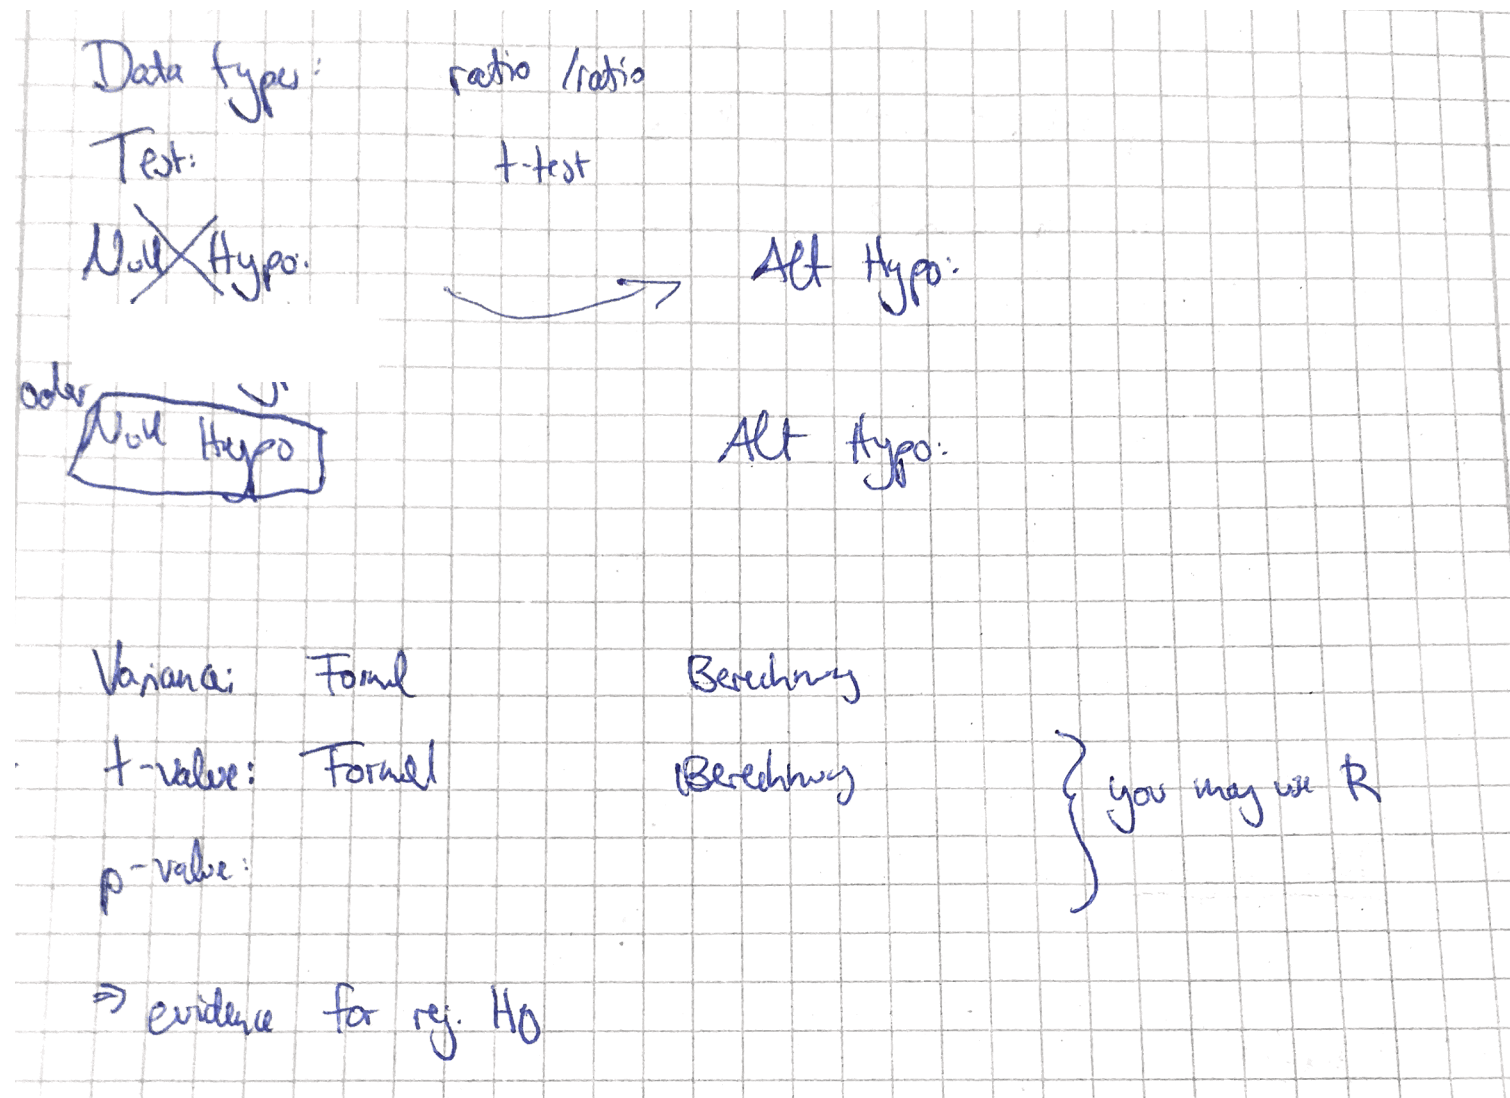 Data types: ratio /ratio
Test: t-test
Null Hypo: Alt Hypo:
oder
Null Hypo Alt Hypo:
Variance: Formel Berechnung
t-value: Formel Berechnung
you may use R
p-value:
⇒ evidence for rej. H0